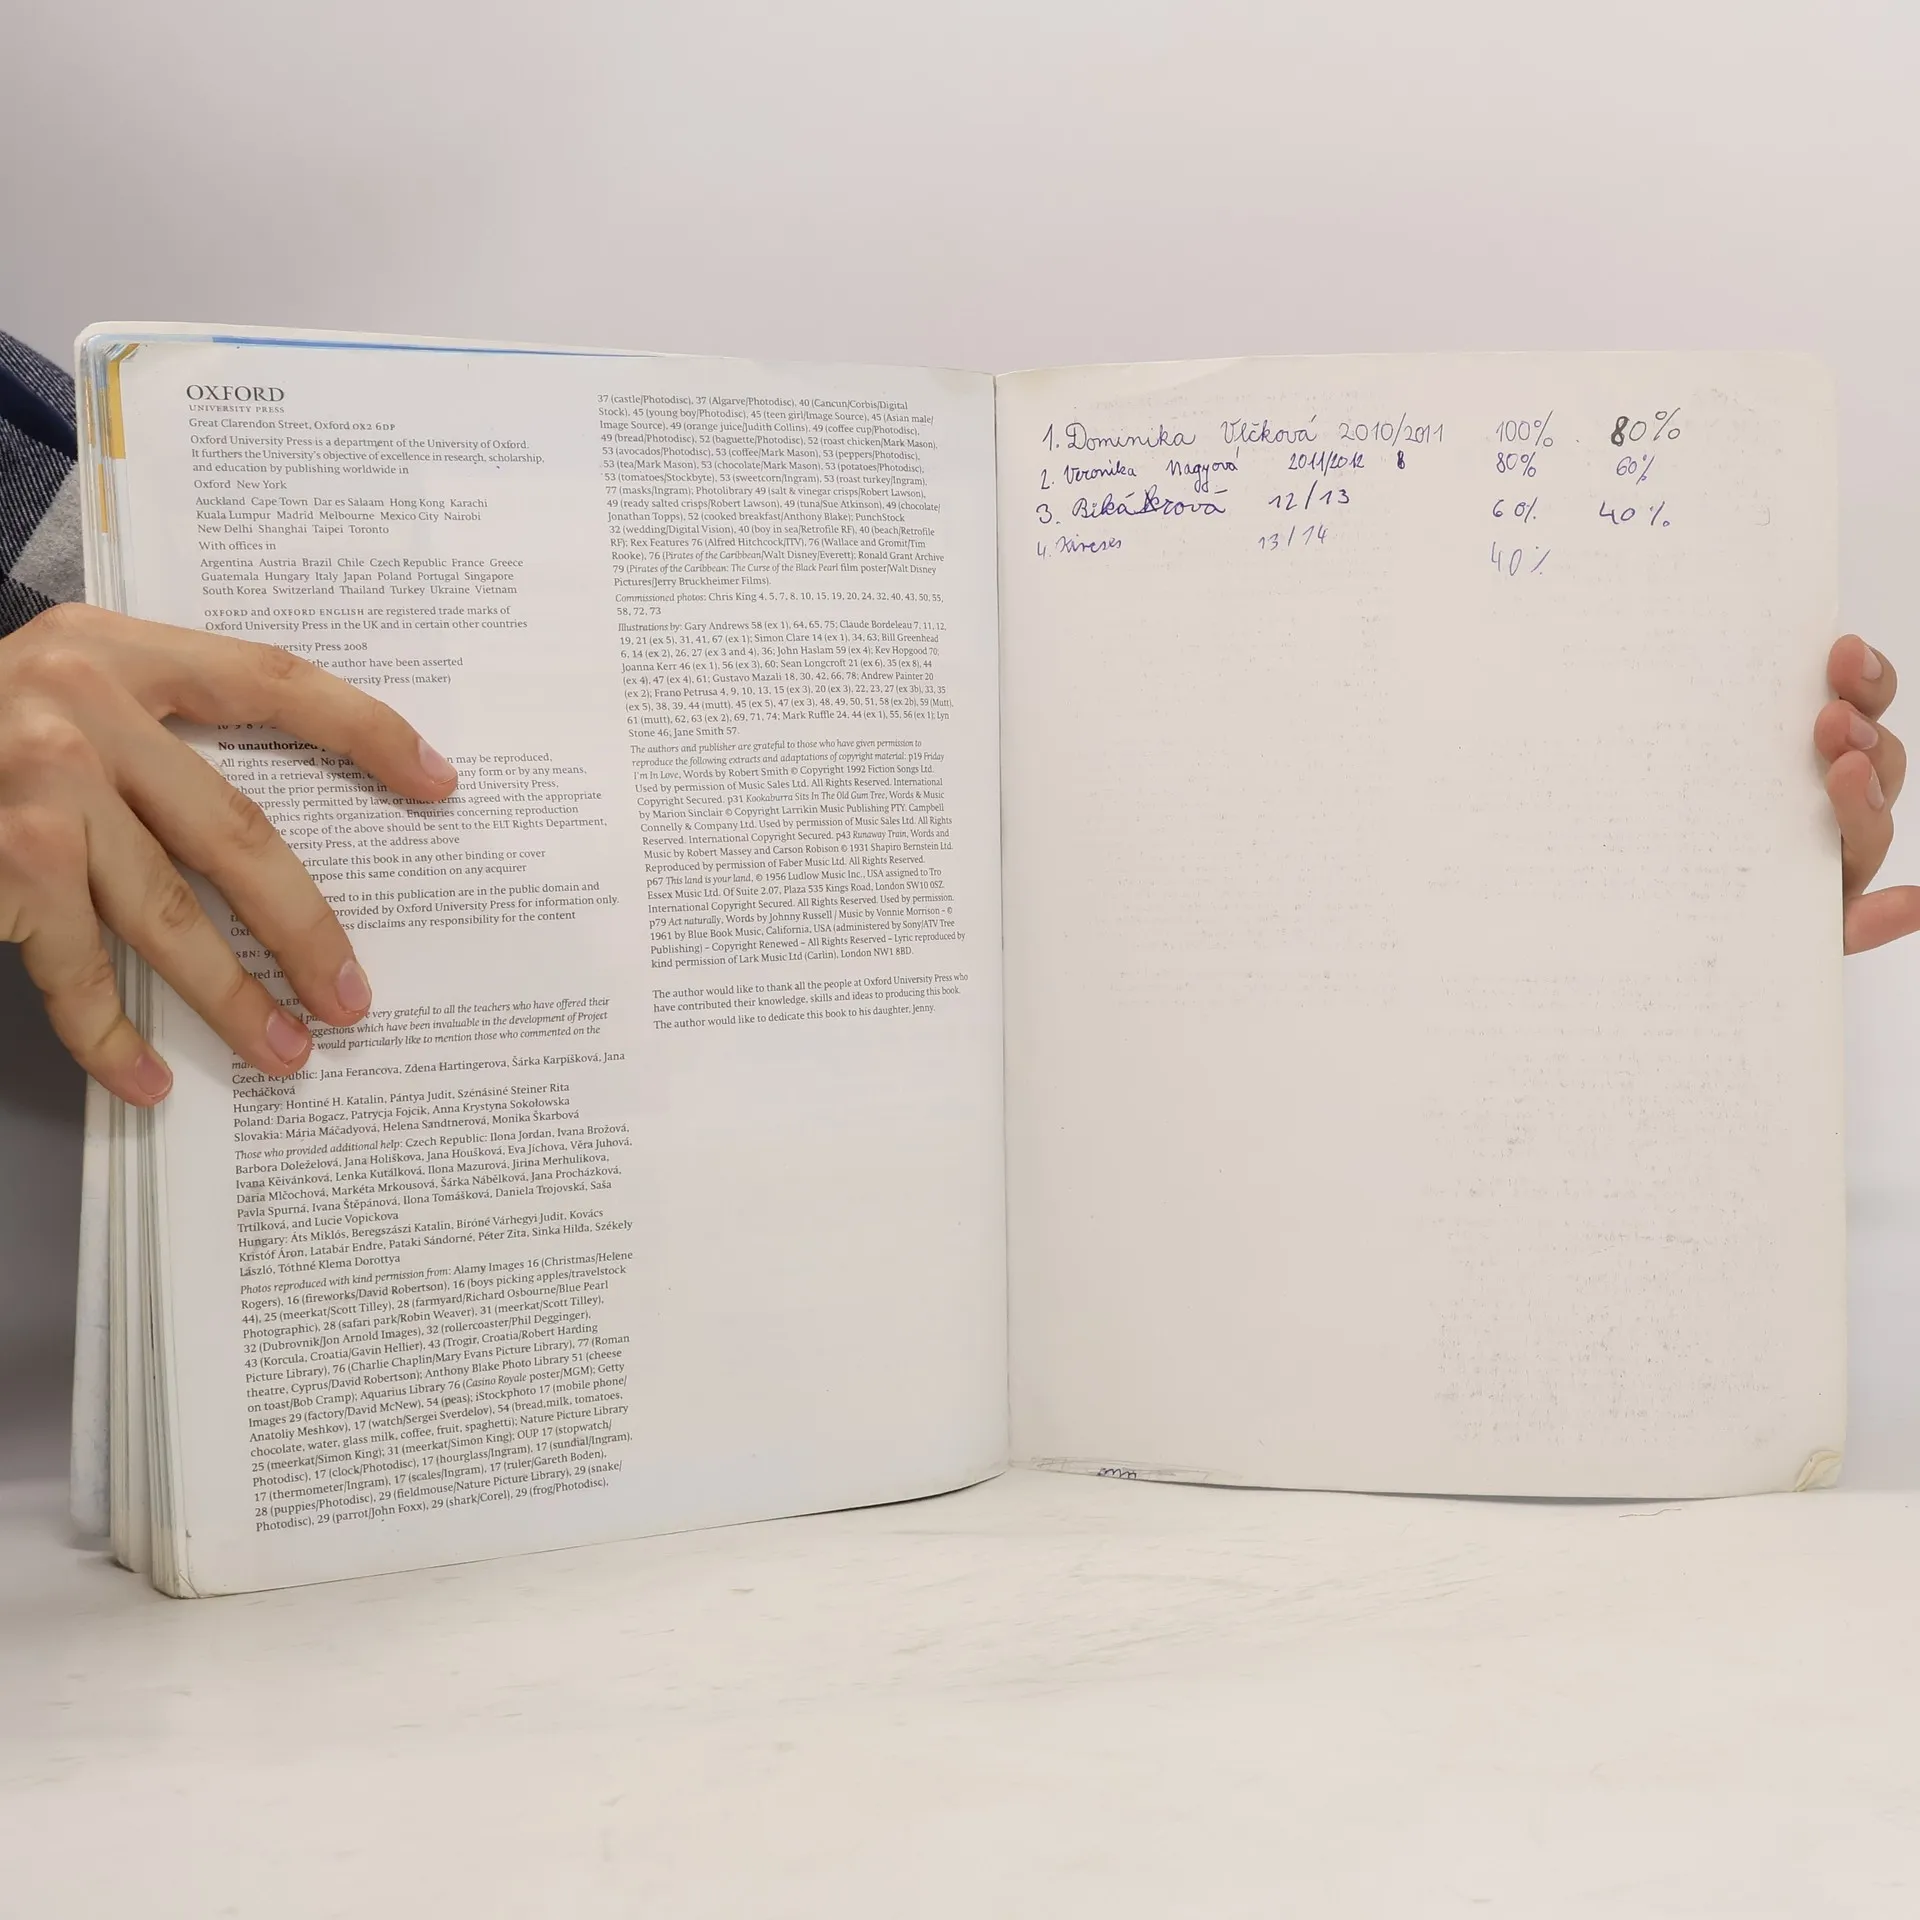 OXFORD
UNIVERSITY PRESS
Great Clarendon Street, Oxford OX2 6DP
Oxford University Press is a department of the University of Oxford.
It furthers the University's objective of excellence in research, scholarship,
and education by publishing worldwide in
Oxford New York
Auckland Cape Town Dar es Salaam Hong Kong Karachi
Kuala Lumpur Madrid Melbourne Mexico City Nairobi
New Delhi Shanghai Taipei Toronto
With offices in
Argentina Austria Brazil Chile Czech Republic France Greece
Guatemala Hungary Italy Japan Poland Portugal Singapore
South Korea Switzerland Thailand Turkey Ukraine Vietnam
OXFORD and OXFORD ENGLISH are registered trade marks of
Oxford University Press in the UK and in certain other countries
Press 2008
the author have been asserted
Press (maker)
No unauthorized
All rights reserved. No may be reproduced,
stored in a retrieval system, any form or by any means,
the prior permission in University Press,
expressly permitted by law, or terms agreed with the appropriate
rights organization. Enquiries concerning reproduction
scope of the above should be sent to the ELT Rights Department,
Press, at the address above
circulate this book in any other binding or cover
this same condition on any acquirer
to in this publication are in the public domain and
provided by Oxford University Press for information only.
disclaims any responsibility for the content
very grateful to all the teachers who have offered their
which have been invaluable in the development of Project
would particularly like to mention those who commented on the
Czech Republic: Jana Ferancova, Zdena Hartingerova, Šárka Karpíšková, Jana
Pecháčková
Hungary: Hontiné H. Katalin, Pántya Judit, Szénásiné Steiner Rita
Poland: Daria Bogacz, Patrycja Fojcik, Anna Krystyna Sokołowska
Slovakia: Mária Máčadyová, Helena Sandtnerová, Monika Škarbová
Those who provided additional help: Czech Republic: Ilona Jordan, Ivana Brožová,
Barbora Doleželová, Jana Holíškova, Jana Houšková, Eva Jíchova, Věra Juhová,
Ivana Kěivánková, Lenka Kutálková, Ilona Mazurová, Jirina Merhulíkova,
Daria Mlčochová, Markéta Mrkousová, Šárka Nábělková, Jana Procházková,
Pavla Spurná, Ivana Štěpánová, Ilona Tomášková, Daniela Trojovská, Saša
Trtílková, and Lucie Vopickova
Hungary: Áts Miklós, Beregszászi Katalin, Biróné Várhegyi Judit, Kovács
Kristóf Áron, Latabár Endre, Pataki Sándorné, Péter Zita, Sinka Hilda, Székely
László, Tóthné Klema Dorottya
Photos reproduced with kind permission from: Alamy Images 16 (Christmas/Helene
Rogers), 16 (fireworks/David Robertson), 16 (boys picking apples/travelstock
44), 25 (meerkat/Scott Tilley), 28 (farmyard/Richard Osbourne/Blue Pearl
Photographic), 28 (safari park/Robin Weaver), 31 (meerkat/Scott Tilley),
32 (Dubrovnik/Jon Arnold Images), 32 (rollercoaster/Phil Degginger),
43 (Korcula, Croatia/Gavin Hellier), 43 (Trogir, Croatia/Robert Harding
Picture Library), 76 (Charlie Chaplin/Mary Evans Picture Library), 77 (Roman
theatre, Cyprus/David Robertson); Anthony Blake Photo Library 51 (cheese
on toast/Bob Cramp); Aquarius Library 76 (Casino Royale poster/MGM); Getty
Images 29 (factory/David McNew), 54 (peas); iStockphoto 17 (mobile phone/
Anatoliy Meshkov), 17 (watch/Sergei Sverdelov), 54 (bread,milk, tomatoes,
chocolate, water, glass milk, coffee, fruit, spaghetti); Nature Picture Library
25 (meerkat/Simon King); 31 (meerkat/Simon King); OUP 17 (stopwatch/
Photodisc), 17 (clock/Photodisc), 17 (hourglass/Ingram), 17 (sundial/Ingram),
17 (thermometer/Ingram), 17 (scales/Ingram), 17 (ruler/Gareth Boden),
28 (puppies/Photodisc), 29 (fieldmouse/Nature Picture Library), 29 (snake/
Photodisc), 29 (parrot/John Foxx), 29 (shark/Corel), 29 (frog/Photodisc),
37 (castle/Photodisc), 37 (Algarve/Photodisc), 40 (Cancun/Corbis/Digital
Stock), 45 (young boy/Photodisc), 45 (teen girl/Image Source), 45 (Asian male/
Image Source), 49 (orange juice/Judith Collins), 49 (coffee cup/Photodisc),
49 (bread/Photodisc), 52 (baguette/Photodisc), 52 (roast chicken/Mark Mason),
53 (avocados/Photodisc), 53 (coffee/Mark Mason), 53 (peppers/Photodisc),
53 (tea/Mark Mason), 53 (chocolate/Mark Mason), 53 (potatoes/Photodisc),
53 (tomatoes/Stockbyte), 53 (sweetcorn/Ingram), 53 (roast turkey/Ingram),
77 (masks/Ingram); Photolibrary 49 (salt & vinegar crisps/Robert Lawson),
49 (ready salted crisps/Robert Lawson), 49 (tuna/Sue Atkinson), 49 (chocolate/
Jonathan Topps), 52 (cooked breakfast/Anthony Blake); PunchStock
32 (wedding/Digital Vision), 40 (boy in sea/Retrofile RF), 40 (beach/Retrofile
RF); Rex Features 76 (Alfred Hitchcock/ITV), 76 (Wallace and Gromit/Tim
Rooke), 76 (Pirates of the Caribbean/Walt Disney/Everett); Ronald Grant Archive
79 (Pirates of the Caribbean: The Curse of the Black Pearl film poster/Walt Disney
Pictures/Jerry Bruckheimer Films).
Commissioned photos: Chris King 4, 5, 7, 8, 10, 15, 19, 20, 24, 32, 40, 43, 50, 55,
58, 72, 73
Illustrations by: Gary Andrews 58 (ex 1), 64, 65, 75; Claude Bordeleau 7, 11, 12,
19, 21 (ex 5), 31, 41, 67 (ex 1); Simon Clare 14 (ex 1), 34, 63; Bill Greenhead
6, 14 (ex 2), 26, 27 (ex 3 and 4), 36; John Haslam 59 (ex 4); Kev Hopgood 70;
Joanna Kerr 46 (ex 1), 56 (ex 3), 60; Sean Longcroft 21 (ex 6), 35 (ex 8), 44
(ex 4), 47 (ex 4), 61; Gustavo Mazali 18, 30, 42, 66, 78; Andrew Painter 20
(ex 2); Frano Petrusa 4, 9, 10, 13, 15 (ex 3), 20 (ex 3), 22, 23, 27 (ex 3b), 33, 35
(ex 5), 38, 39, 44 (mutt), 45 (ex 5), 47 (ex 3), 48, 49, 50, 51, 58 (ex 2b), 59 (Mutt),
61 (mutt), 62, 63 (ex 2), 69, 71, 74; Mark Ruffle 24, 44 (ex 1), 55, 56 (ex 1); Lyn
Stone 46; Jane Smith 57.
The authors and publisher are grateful to those who have given permission to
reproduce the following extracts and adaptations of copyright material: p19 Friday
I'm In Love, Words by Robert Smith © Copyright 1992 Fiction Songs Ltd.
Used by permission of Music Sales Ltd. All Rights Reserved. International
Copyright Secured. p31 Kookaburra Sits In The Old Gum Tree, Words & Music
by Marion Sinclair © Copyright Larrikin Music Publishing PTY. Campbell
Connelly & Company Ltd. Used by permission of Music Sales Ltd. All Rights
Reserved. International Copyright Secured. p43 Runaway Train, Words and
Music by Robert Massey and Carson Robison © 1931 Shapiro Bernstein Ltd.
Reproduced by permission of Faber Music Ltd. All Rights Reserved.
p67 This land is your land, © 1956 Ludlow Music Inc., USA assigned to Tro
Essex Music Ltd. Of Suite 2.07, Plaza 535 Kings Road, London SW10 0SZ.
International Copyright Secured. All Rights Reserved. Used by permission.
p79 Act naturally, Words by Johnny Russell / Music by Vonnie Morrison - ©
1961 by Blue Book Music, California, USA (administered by Sony/ATV Tree
Publishing) – Copyright Renewed – All Rights Reserved – Lyric reproduced by
kind permission of Lark Music Ltd (Carlin), London NW1 8BD.
The author would like to thank all the people at Oxford University Press who
have contributed their knowledge, skills and ideas to producing this book.
The author would like to dedicate this book to his daughter, Jenny.
1. Dominika Vlčková 2010/2011 100% 80%
2. Veronika Nagyová 2011/2012 80% 60%
3. 12/13 60% 40%
4. 13/14 40%